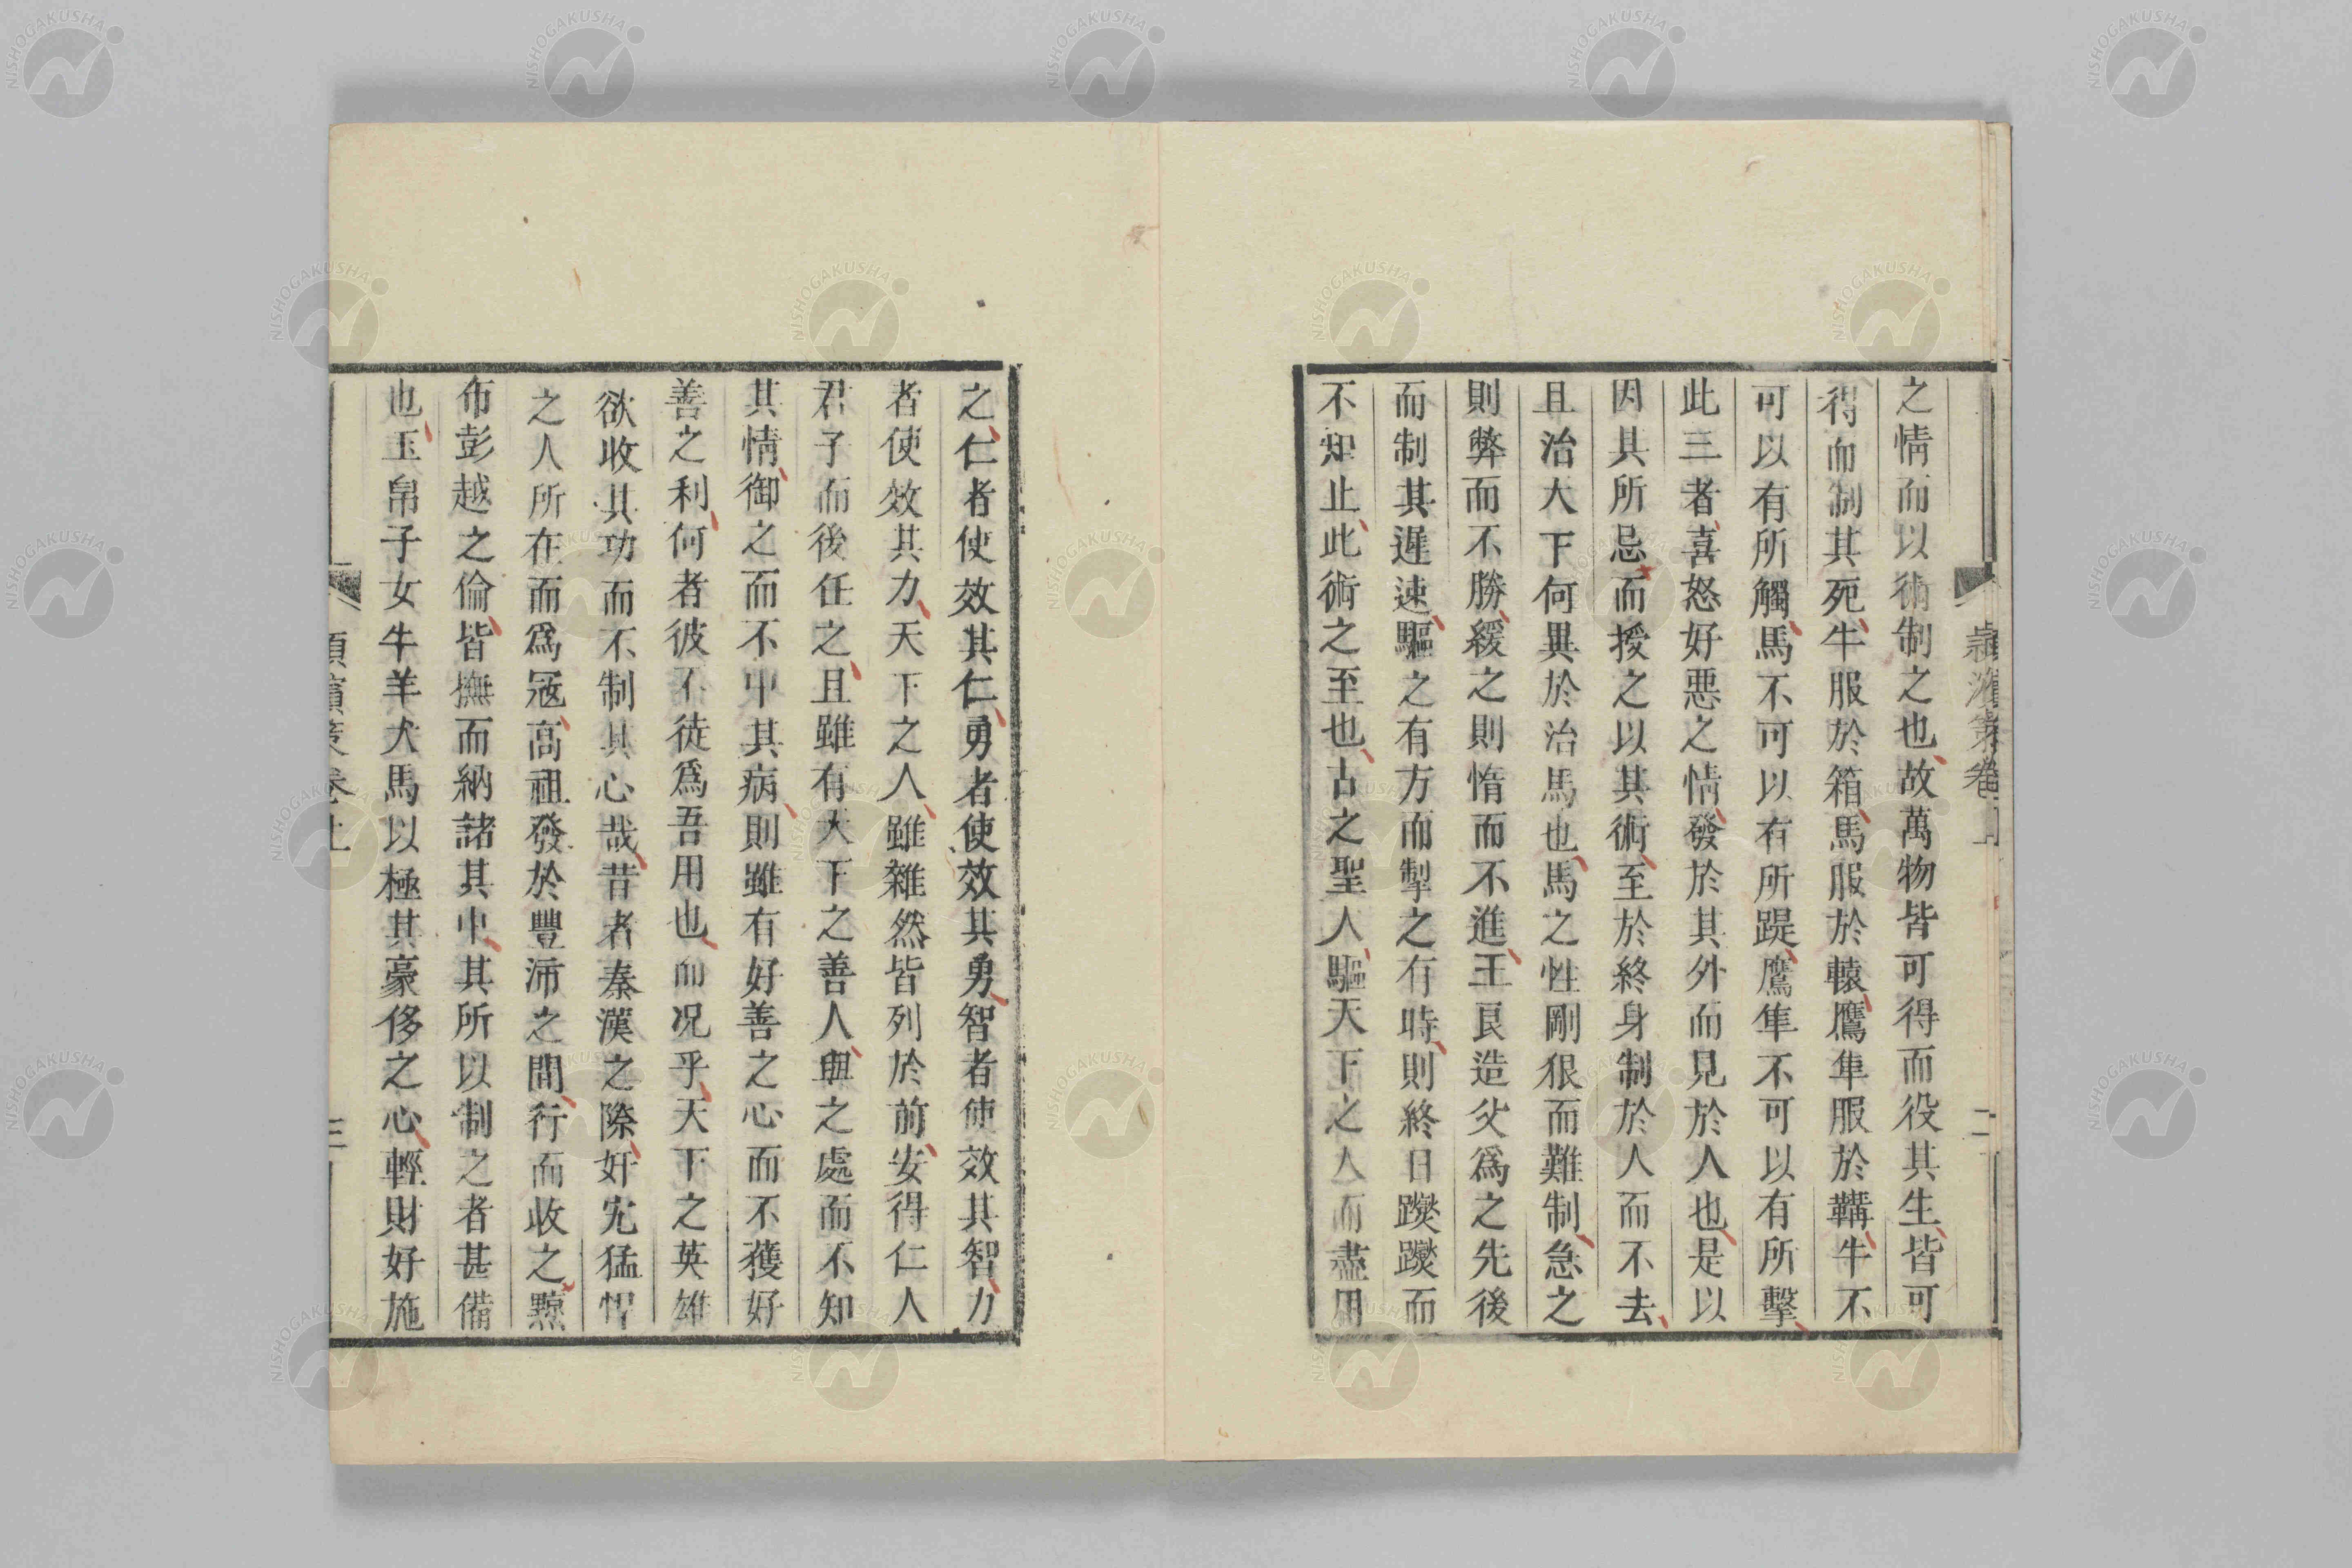 潁濱策卷上
二
之情而以術制之也故萬物皆可得而役其生皆可
得而制其死牛服於箱馬服於轅鷹隼服於鞲牛不
可以有所觸馬不可以有所踶鷹隼不可以有所擊
此三者喜怒好惡之情發於其外而見於人也是以
因其所忌而授之以其術至於終身制於人而不去
且治天下何異於治馬也馬之性剛狠而難制急之
則弊而不勝緩之則惰而不進王良造父爲之先後
而制其遲速驅之有方而掣之有時則終日躞躞而
不知止此術之至也古之聖人驅天下之人而盡用
之仁者使效其仁勇者使效其勇智者使效其智力
者使效其力天下之人雖雜然皆列於前安得仁人
君子而後任之且雖有天下之善人與之處而不知
其情御之而不中其病則雖有好善之心而不獲好
善之利何者彼不徒爲吾用也而况乎天下之英雄
欲收其功而不制其心哉昔者秦漢之際奸宄猛悍
之人所在而爲冦高祖發於豐沛之間行而收之黥
布彭越之倫皆撫而納諸其中其所以制之者甚備
也玉帛子女牛羊犬馬以極其豪侈之心輕財好施
潁濱策卷上
三
NISHOGAKUSHA